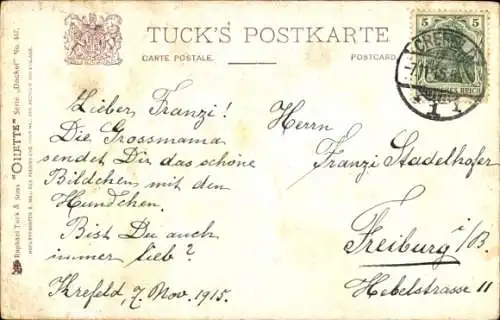 TUCK'S POSTKARTE
CARTE POSTALE.
POSTCARD.
Raphael Tuck & Sons "OILETTE" Serie „Dackel" No.
Lieber Franzi!
Die Grossmama
sendet Dir das schöne
Bildchen mit den
Hundchen.
Bist Du auch
immer lieb?
Krefeld, 7. Nov. 1915.
5 5
CREFELD
Herrn
Franzi Stadelhofer
Freiburg i/B.
Hebelstrasse 11